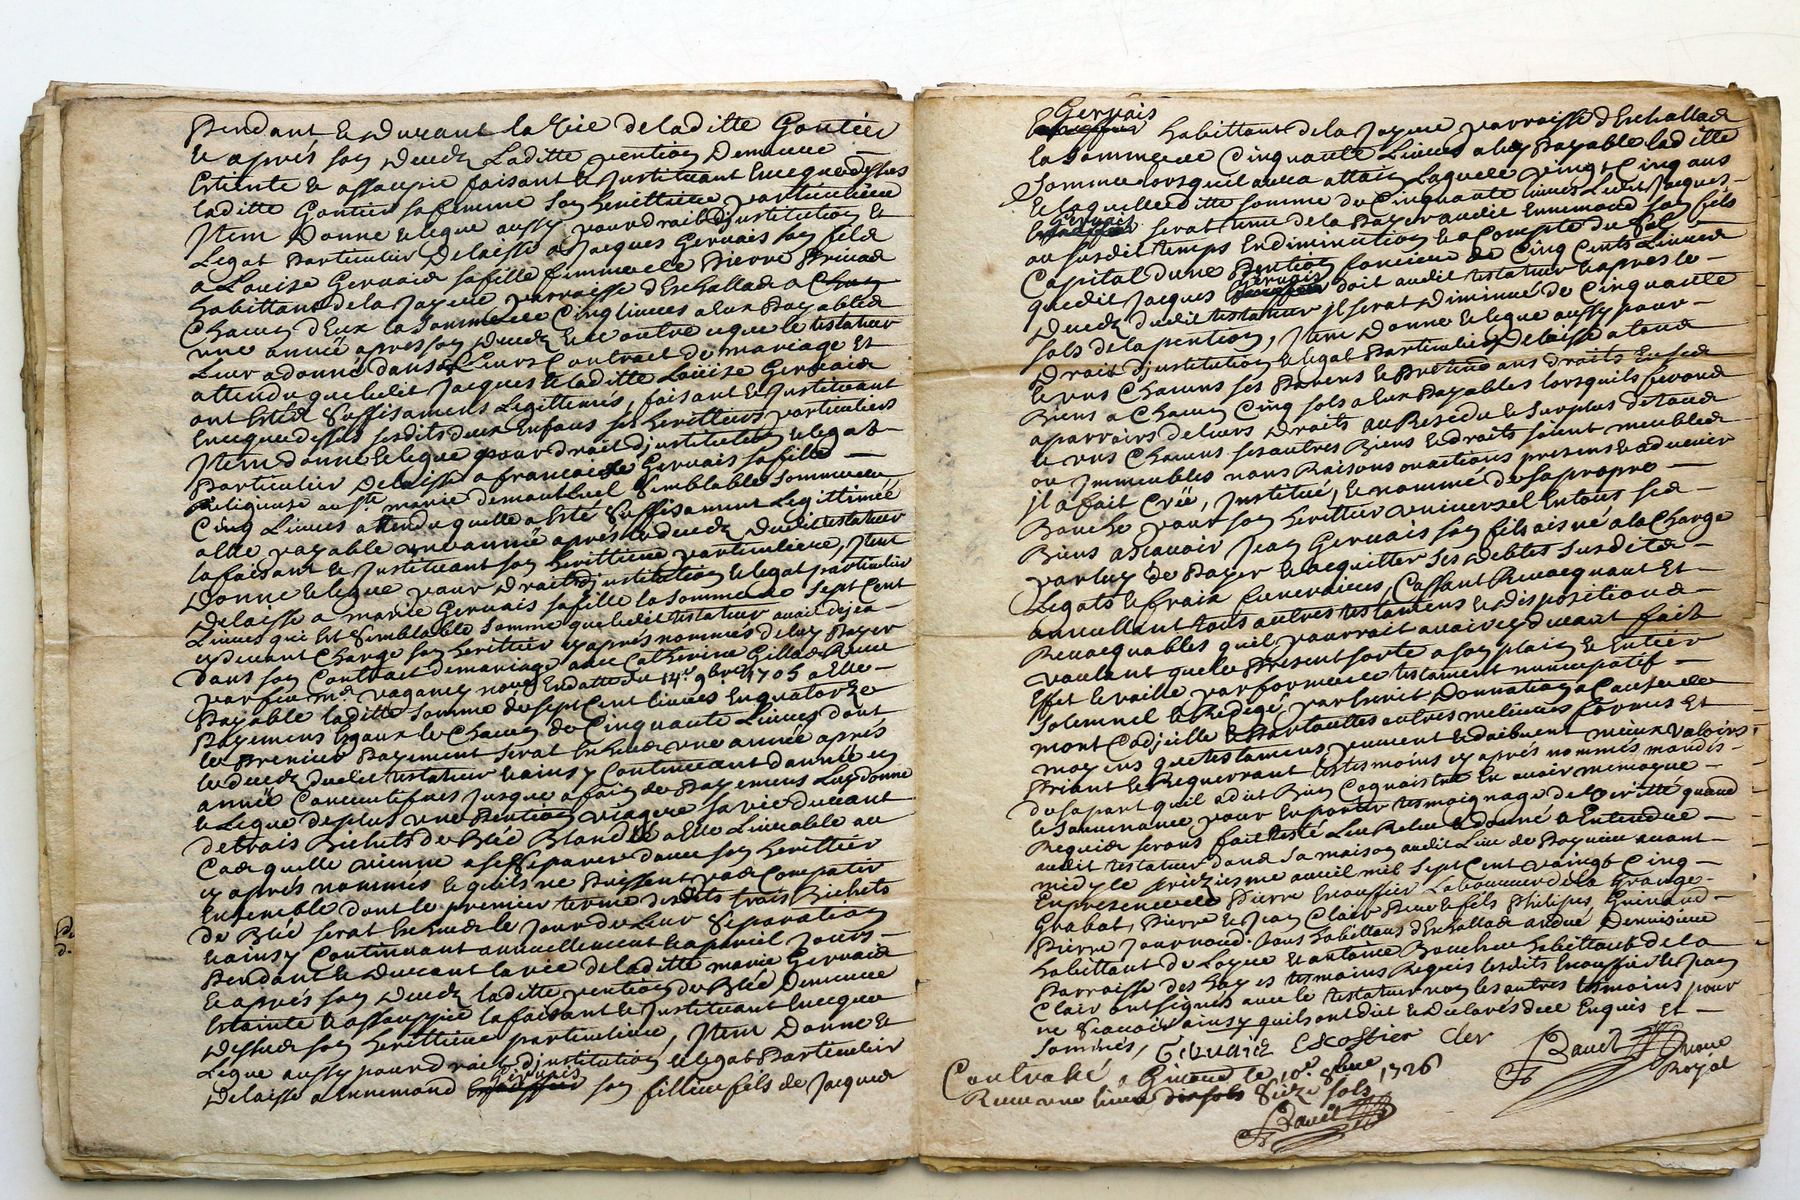 Pendant & Durant la Vie de laditte Gontier
& aprés son deceds Laditte pention Demeure
Esteinte & assoupie faisant & Justituant Encequedessus
laditte Gontier sa femme son heritiere particuliere
Jtem Donne & legue aussy pour droit d'justitution Et
Legat Particulier delaisse a Jacques Gervais son fils &
a Louise Gervais sa fille femme de Pierre
habittant de la parroisse d'Eschallas a Chacun
Chacun d'Eux la Somme de Cinq livres a Eux Payables
une année apres son deceds & ce outre ceque le testateur
Leur a donné dans Leurs Contract de mariage Et
attendu que ledit Jacques & laditte Loüise Gervais
ont Estés Suffisament Legittimés, faisant & Justituant
Encequedessus sesdits deux Enfans ses heritiers particuliers
Jtem donne & legue pour droit d'justitution & legat
Particulier delaisse a francoise Gervais sa fille
Religieuse au Semblable Somme de
Cinq Livres attendu quelle a Esté Suffisament Legittimée
a Elle payable une année aprés le deceds dudit testateur
la faisant & Justituant son heritiere particuliere, Jtem
Donne & legue pour droit d'justitution & legat particulier
delaisse a marie Gervais sa fille la Somme de Sept Cent
Livres qui Est Semblable Somme que ledit testateur avait deja
cydevant Chargé son heritier cy aprés nommés de luy Payer
dans son Contract de mariage avec Catherine Gillas Receu
par feu Me vaganey nore Endatte du 14e 9bre 1705 a Elle
Payable laditte Somme de sept Cent livres En quatorze
Payemens Egaux & Chacun de Cinquante Livres dont
le Premier Payement serat une année aprés
le deceds dudit testateur & ainsy Continuant d'année en
année Jusque a fain de Payemens Luy donne
& Legue de plus une Pention viagere sa vie durant
de trois Bichets de Blé Blond a Elle Livrable au
Cas quelle vienne a se Séparer d'avec son heritier
cy aprés nommés & quils ne Puissent pas Compatir
Ensemble dont le premier terme desdits trois Bichets
de Blé serat le Jour de Leur Séparation
& ainsy Continuant annuellement & a pareil Jours
Pendant & Durant la vie de laditte marie Gervais
& aprés son deceds laditte pention de Blé Demeure
Estainte & assoupie la faisant & Justituant Encequedessus
son heritiere particuliere, Jtem Donne Et
Legue aussy pour droit d'justitution & legat Particulier
delaisse a Ennemond Gervais son fillieu fils de Jacques
Gervais
habittant de la parroisse d'Eschallas
la Somme de Cinquante Livres a luy Payable laditte
Somme lorsquil aura attain Laage de vingt Cinq ans
& laquelle ditte somme de Cinquante livres Ledit Jacques
Gervais serat tenu de la Payer audit Ennemond son fils
au susdit temps En diminution & a Compte du
Capital dune Pention fonciere de Cinq Cents Livres
que ledit Jacques Gervais doit audit testateur & apres le
deceds dudit testateur jl serat Diminué de Cinquante
sols de la pention, Jtem Donne & legue aussy pour
droit d'justitution & legat Particulier delaisse a tous
& uns Chacuns ses Parens & Pretendans droits En ses
Biens a Chacun Cinq sols a Eux Payables lorsquils
aparroirs de leurs droits au Residu & Surplus de tous
& uns Chacuns ses autres Biens & droits soient meubles
ou Jmmeubles noms Raisons ou actions presens & advenir
jl a fait Créé, Justitué, & nommé de sa propre
Bouche pour son heritier universel En tous ses
Biens a Scavoir Jean Gervais son fils aisné a la Charge
par luy de Payer & acquitter ses debtes susdits
Legats & fraix funeraires, Cassant Revocquant Et
annullant tous autres testamens & dispositions
Revocquables quil pourrait avoir cy devant fait
voulant que le Present sorte a son plain & Entier
Effet & vaille par forme de testament nuncupatif
Solemnel & Redigé par Escrit Donnation a Cause de
mort Codicille & Partouttes autres melieures formes Et
moyens que testamens peuvent & doibvent mieux valoirs
Priant & Requerrant les tesmoins cy aprés nommés
de sa part quil a dit Bien Cognoistre En avoir memoyre
& Souvenance pour En porter tesmoignage de verité quand
Requis serons fait testé Leu Releu & donné a Entendre
audit testateur dans sa maison audit Lieu de avant
midy le treizieme avril mil Sept Cent vaingt Cinq
En presence de Pierre Escoffier Laboureur de la Grange
Grabat, Pierre & Jean Clair Pere & fils Philipes
Pierre Journoud. tous habittans d'Eschallas
habittant de & antoine Boucher habittant de la
Parroisse des hayes tesmoins Requis lesdits Escoffier & Jean
Clair ont signés avec le testateur non les autres tesmoins pour
ne Scavoir ainsy quils ont dit & declarés de ce Enquis Et
Sommés, Gervaiz Escoffier Cler
Controllé a Givord le 10e 8bre 1726
Receu une livre dix sols Seize sols
nore
Royal